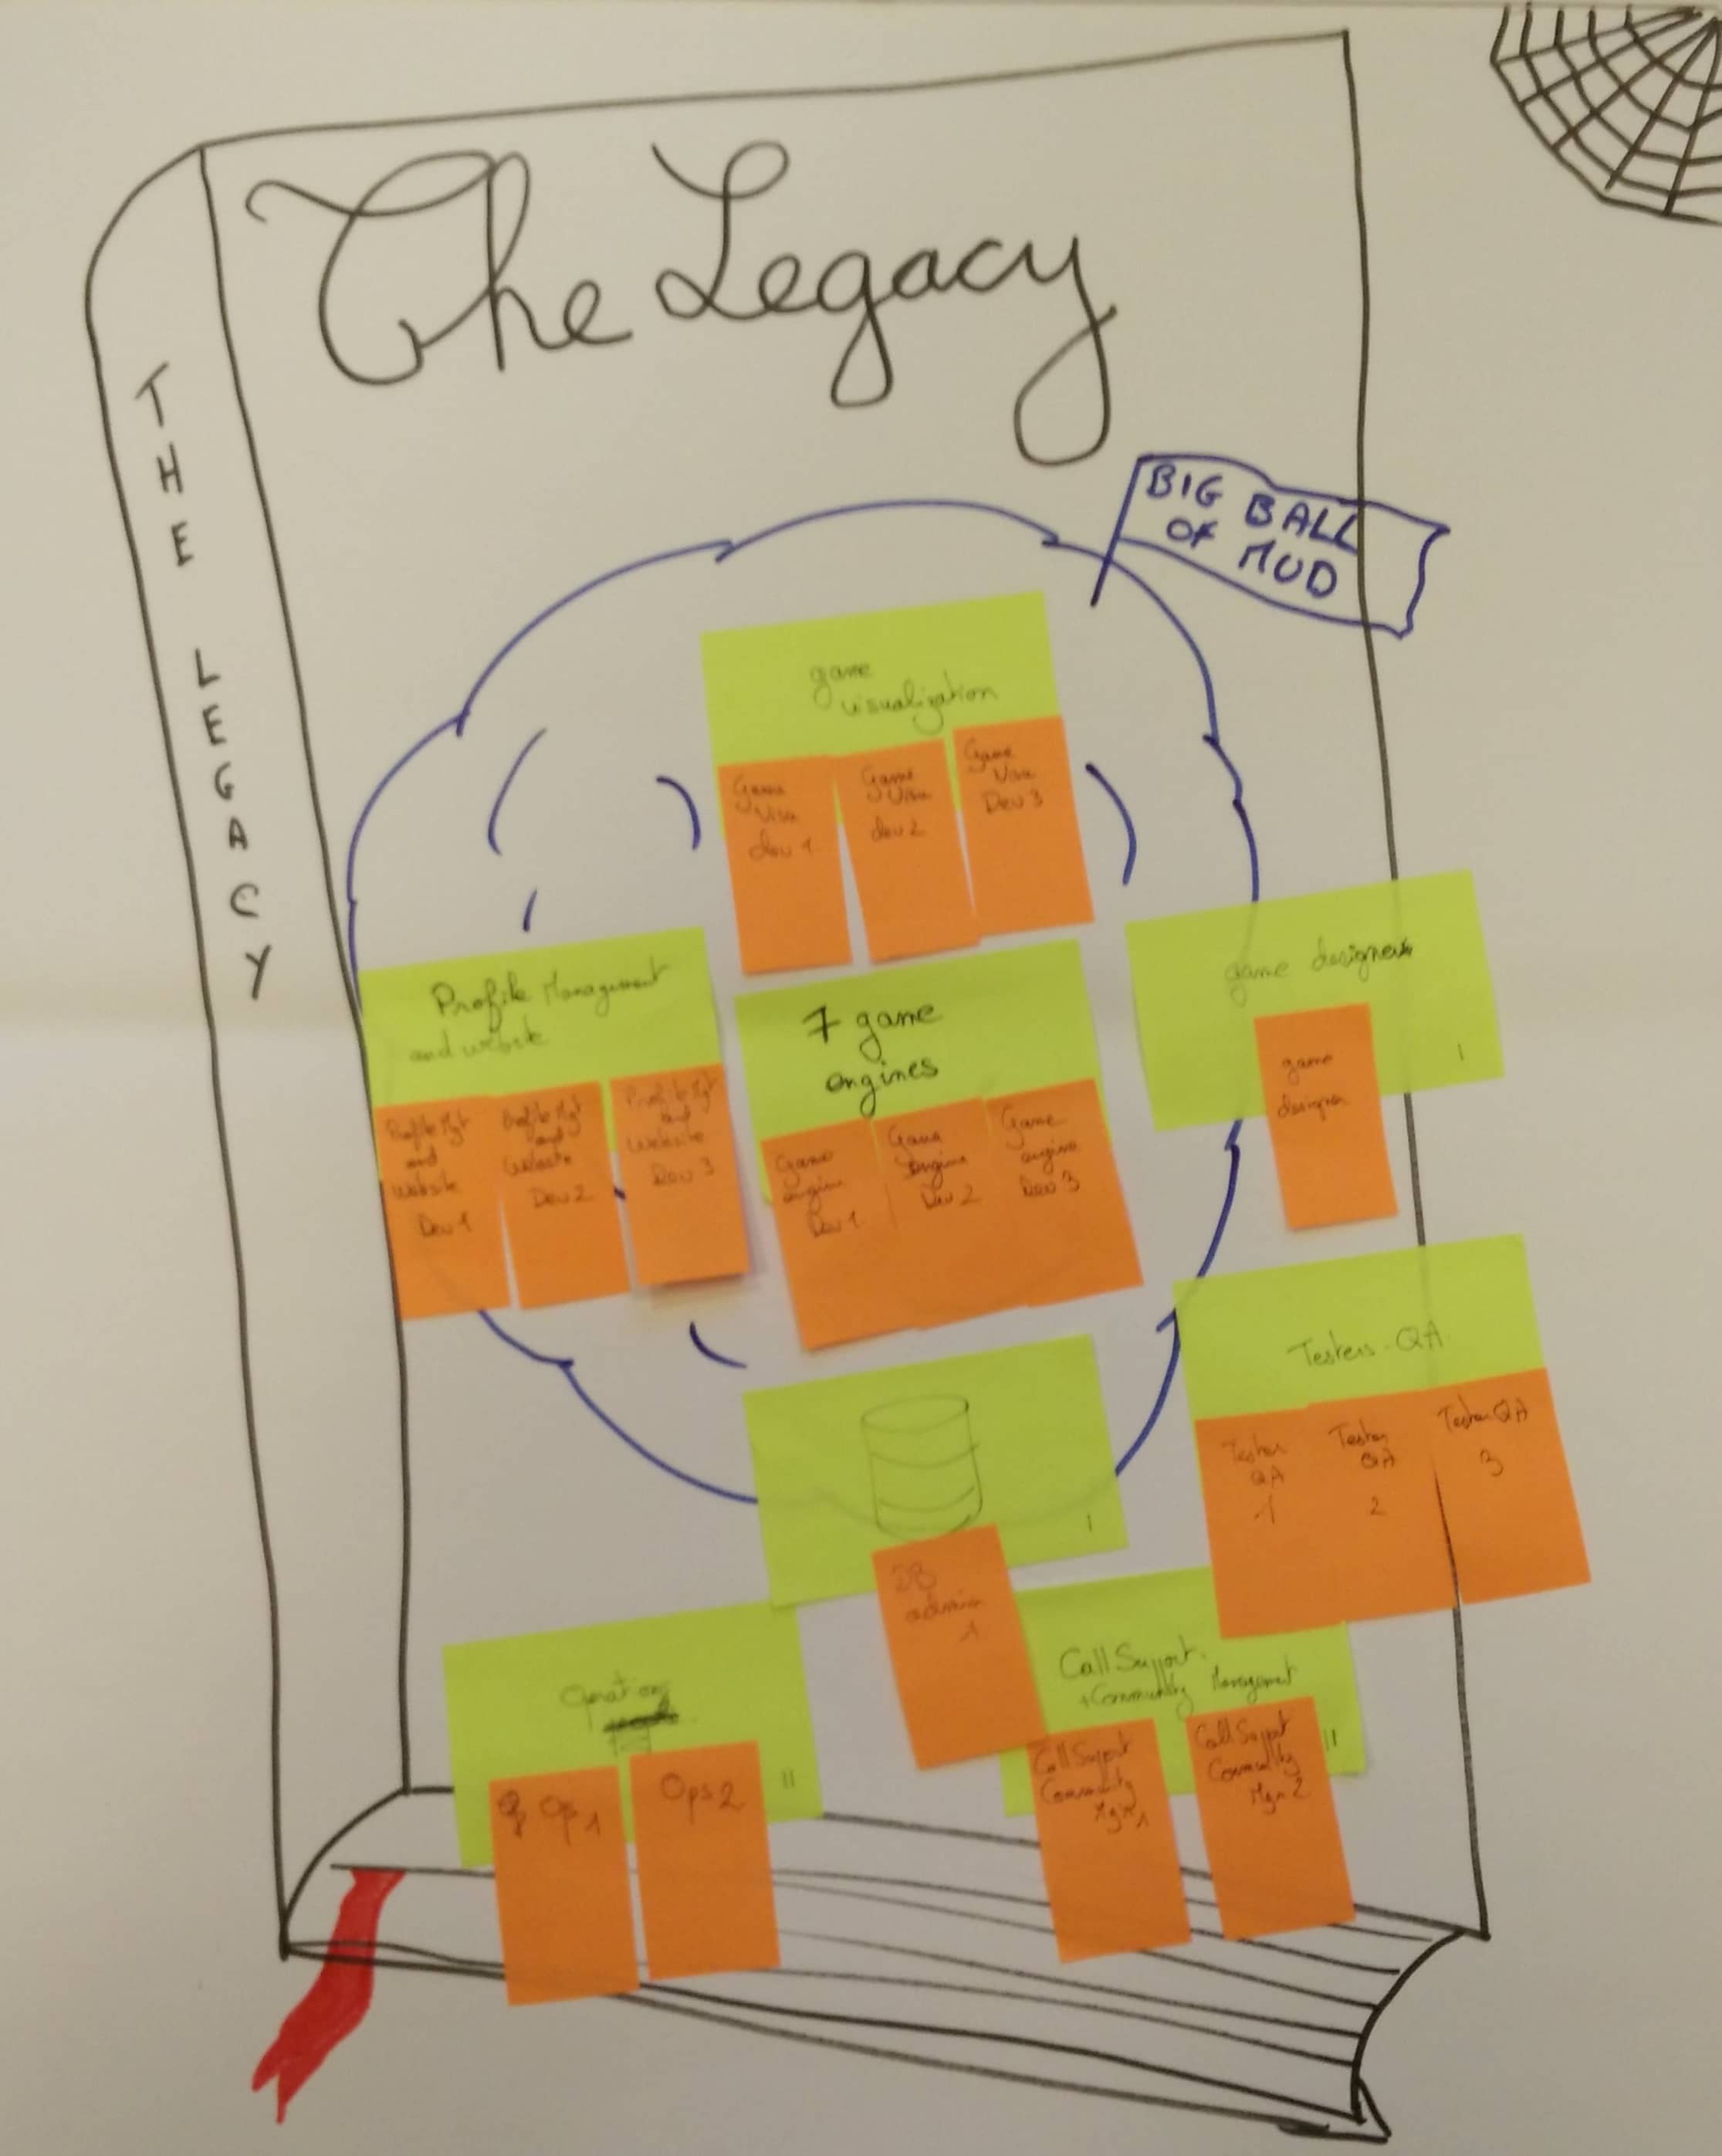 The Legacy
THE LEGACY
BIG BALL
OF MUD
game
visualization
Game
Visu
dev 1
Game
Visu
dev 2
Game
Visu
Dev 3
Profile Management
and website
Profile Mgt
and
Website
Dev 1
Profile Mgt
and
Website
Dev 2
Profile Mgt
and
Website
Dev 3
7 game
engines
Game
engine
Dev 1
Game
Engine
Dev 2
Game
engine
Dev 3
game designers
I
game
designer
Testers - QA
Tester
QA
1
Tester
QA
2
Tester QA
3
I
DB
admin
1
Operations
II
Op 1
Ops 2
Call Support
+ Community Management
II
Call Support
Community
Mgr 1
Call Support
Community
Mgr 2